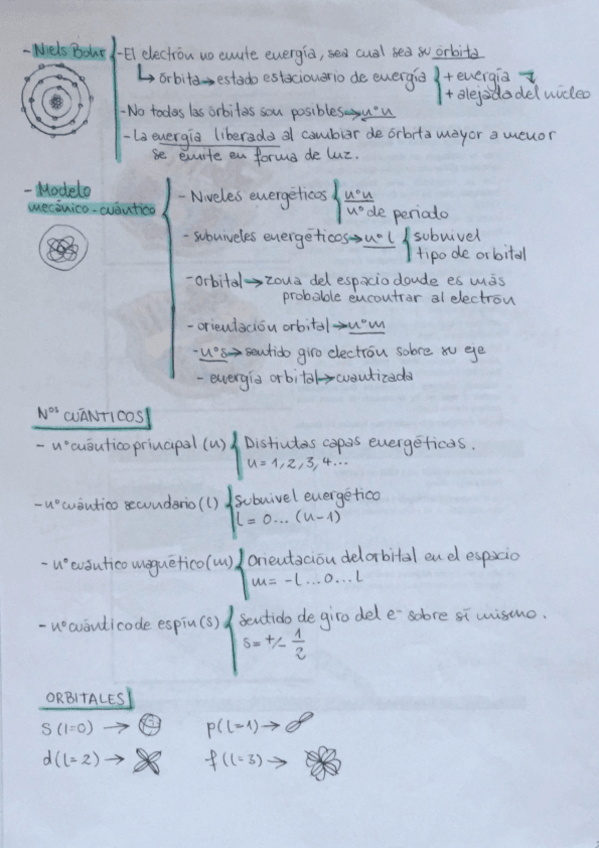 - Niels Bohr
- El electrón no emite energía, sea cual sea su órbita
↳ órbita → estado estacionario de energía { + energía
+ alejado del núcleo
- No todas las órbitas son posibles → nº n
- La energía liberada al cambiar de órbita mayor a menor
se emite en forma de luz.
- Modelo
mecánico-cuántico
- Niveles energéticos { nº n
nº de periodo
- subniveles energéticos → nº l { subnivel
tipo de orbital
- orbital → zona del espacio donde es más
probable encontrar al electrón
- orientación orbital → nº m
- nº s → sentido giro electrón sobre su eje
- energía orbital → cuantizada
Nos CUÁNTICOS
- nº cuántico principal (n) { Distintas capas energéticas.
n = 1, 2, 3, 4...
- nº cuántico secundario (l) { Subnivel energético
l = 0... (n-1)
- nº cuántico magnético (m) { Orientación del orbital en el espacio
m = -l...0...l
- nº cuántico de espín (s) { Sentido de giro del e- sobre sí mismo.
s = +/- 1/2
ORBITALES
s (l=0) →
p (l=1) →
d (l=2) →
f (l=3) →